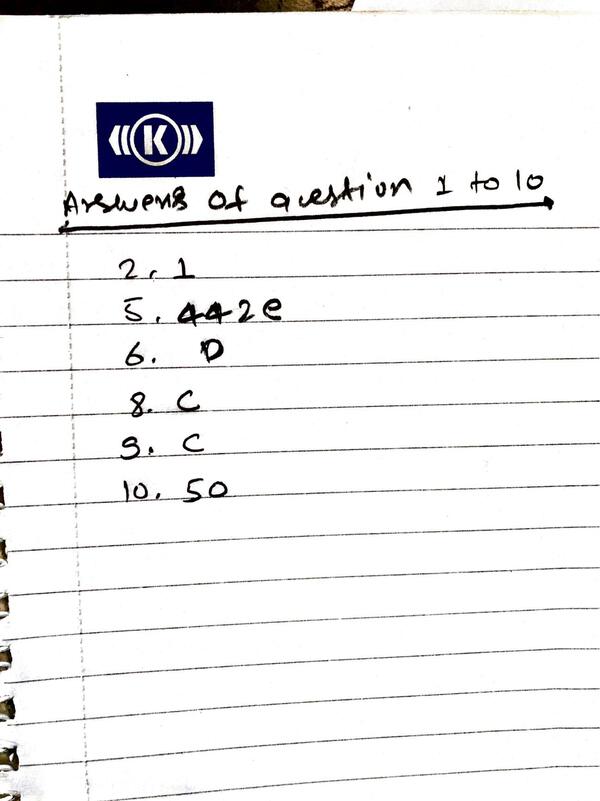 K
Answers of question 1 to 10
2. 1
5. 442e
6. D
8. C
9. C
10. 50